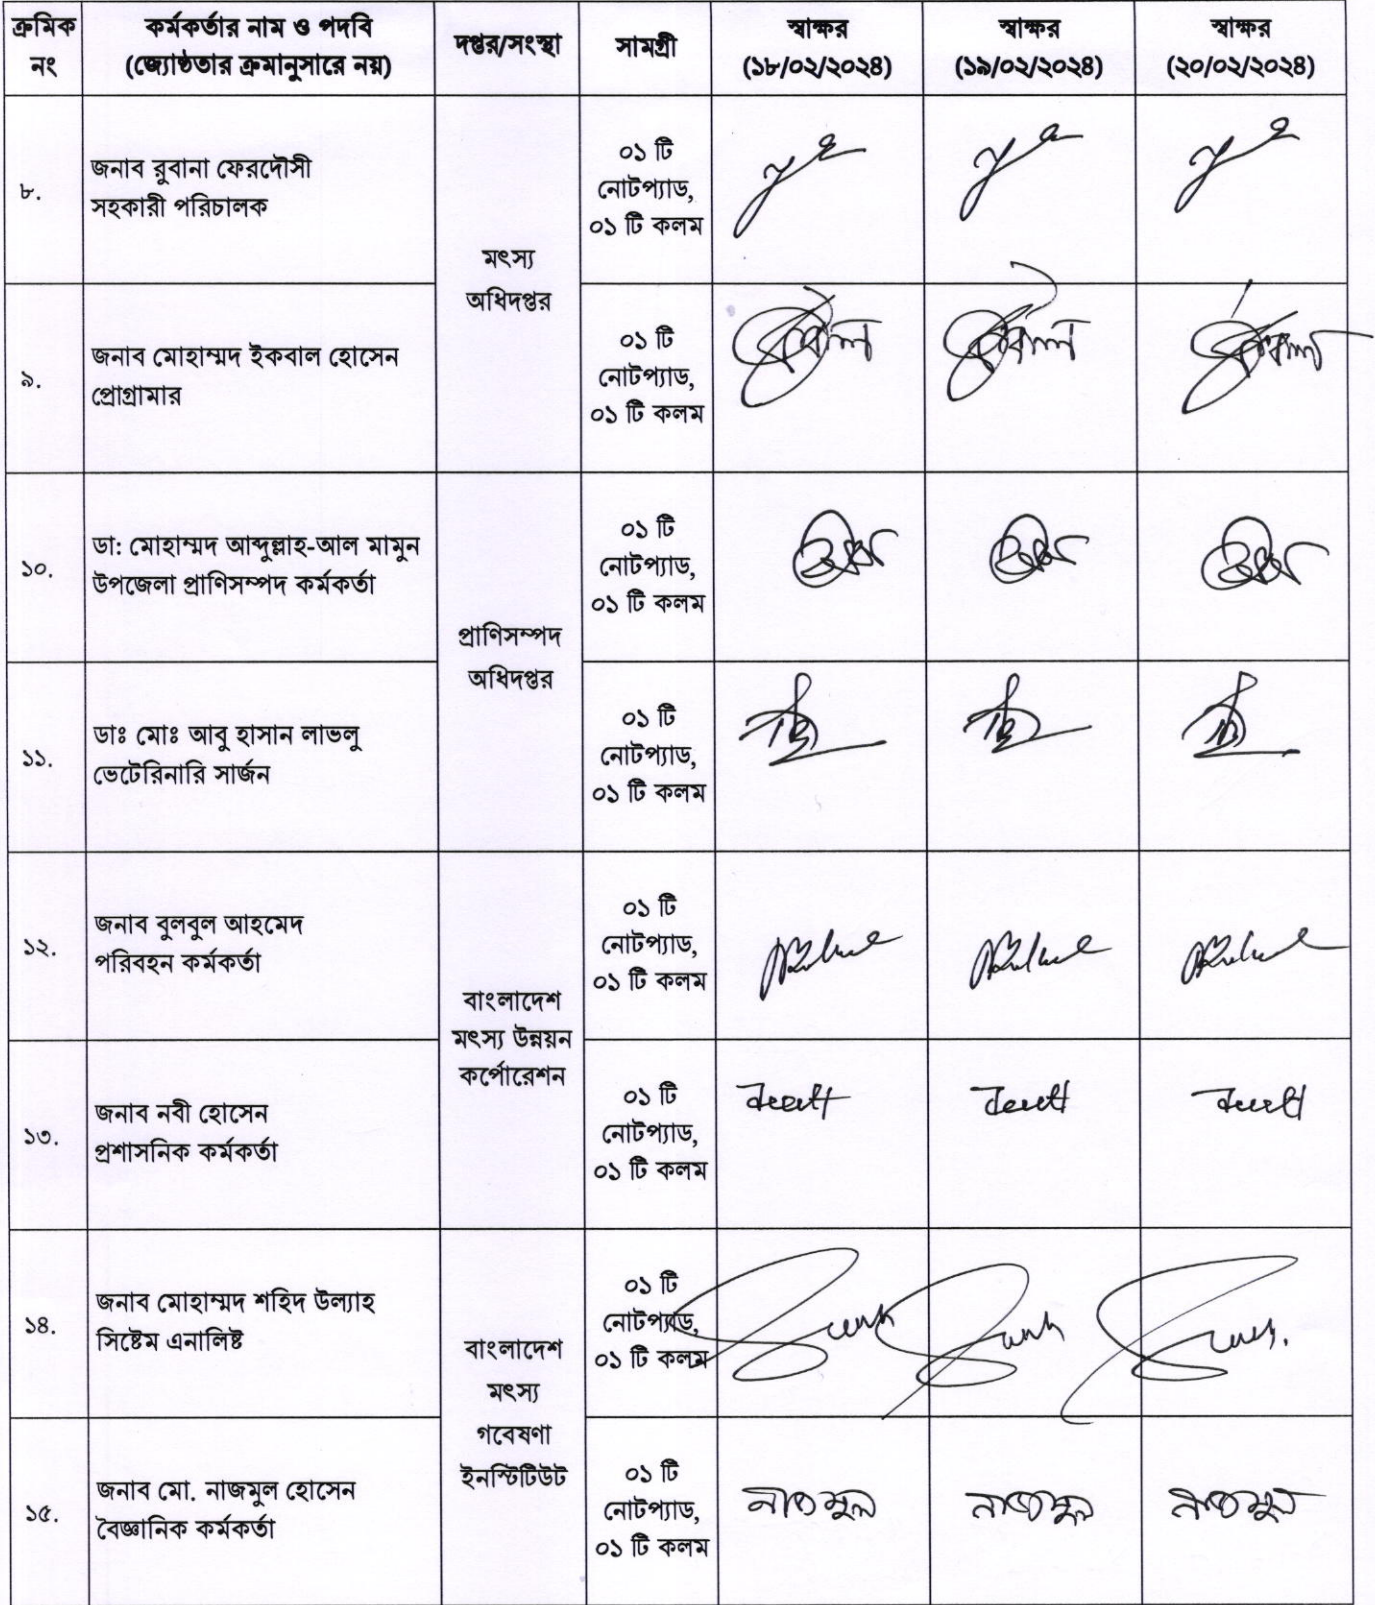 ক্রমিক নং
কর্মকর্তার নাম ও পদবি
(জ্যেষ্ঠতার ক্রমানুসারে নয়)
দপ্তর/সংস্থা
সামগ্রী
স্বাক্ষর
(১৮/০২/২০২৪)
স্বাক্ষর
(১৯/০২/২০২৪)
স্বাক্ষর
(২০/০২/২০২৪)
৮.
জনাব রুবানা ফেরদৌসী
সহকারী পরিচালক
মৎস্য
অধিদপ্তর
০১ টি
নোটপ্যাড,
০১ টি কলম
৯.
জনাব মোহাম্মদ ইকবাল হোসেন
প্রোগ্রামার
০১ টি
নোটপ্যাড,
০১ টি কলম
১০.
ডা: মোহাম্মদ আব্দুল্লাহ-আল মামুন
উপজেলা প্রাণিসম্পদ কর্মকর্তা
প্রাণিসম্পদ
অধিদপ্তর
০১ টি
নোটপ্যাড,
০১ টি কলম
১১.
ডাঃ মোঃ আবু হাসান লাভলু
ভেটেরিনারি সার্জন
০১ টি
নোটপ্যাড,
০১ টি কলম
১২.
জনাব বুলবুল আহমেদ
পরিবহন কর্মকর্তা
বাংলাদেশ
মৎস্য উন্নয়ন
কর্পোরেশন
০১ টি
নোটপ্যাড,
০১ টি কলম
১৩.
জনাব নবী হোসেন
প্রশাসনিক কর্মকর্তা
০১ টি
নোটপ্যাড,
০১ টি কলম
১৪.
জনাব মোহাম্মদ শহিদ উল্যাহ
সিষ্টেম এনালিষ্ট
বাংলাদেশ
মৎস্য
গবেষণা
ইনস্টিটিউট
০১ টি
নোটপ্যাড,
০১ টি কলম
১৫.
জনাব মো. নাজমুল হোসেন
বৈজ্ঞানিক কর্মকর্তা
০১ টি
নোটপ্যাড,
০১ টি কলম
নাজমুল
নাজমুল
নাজমুল